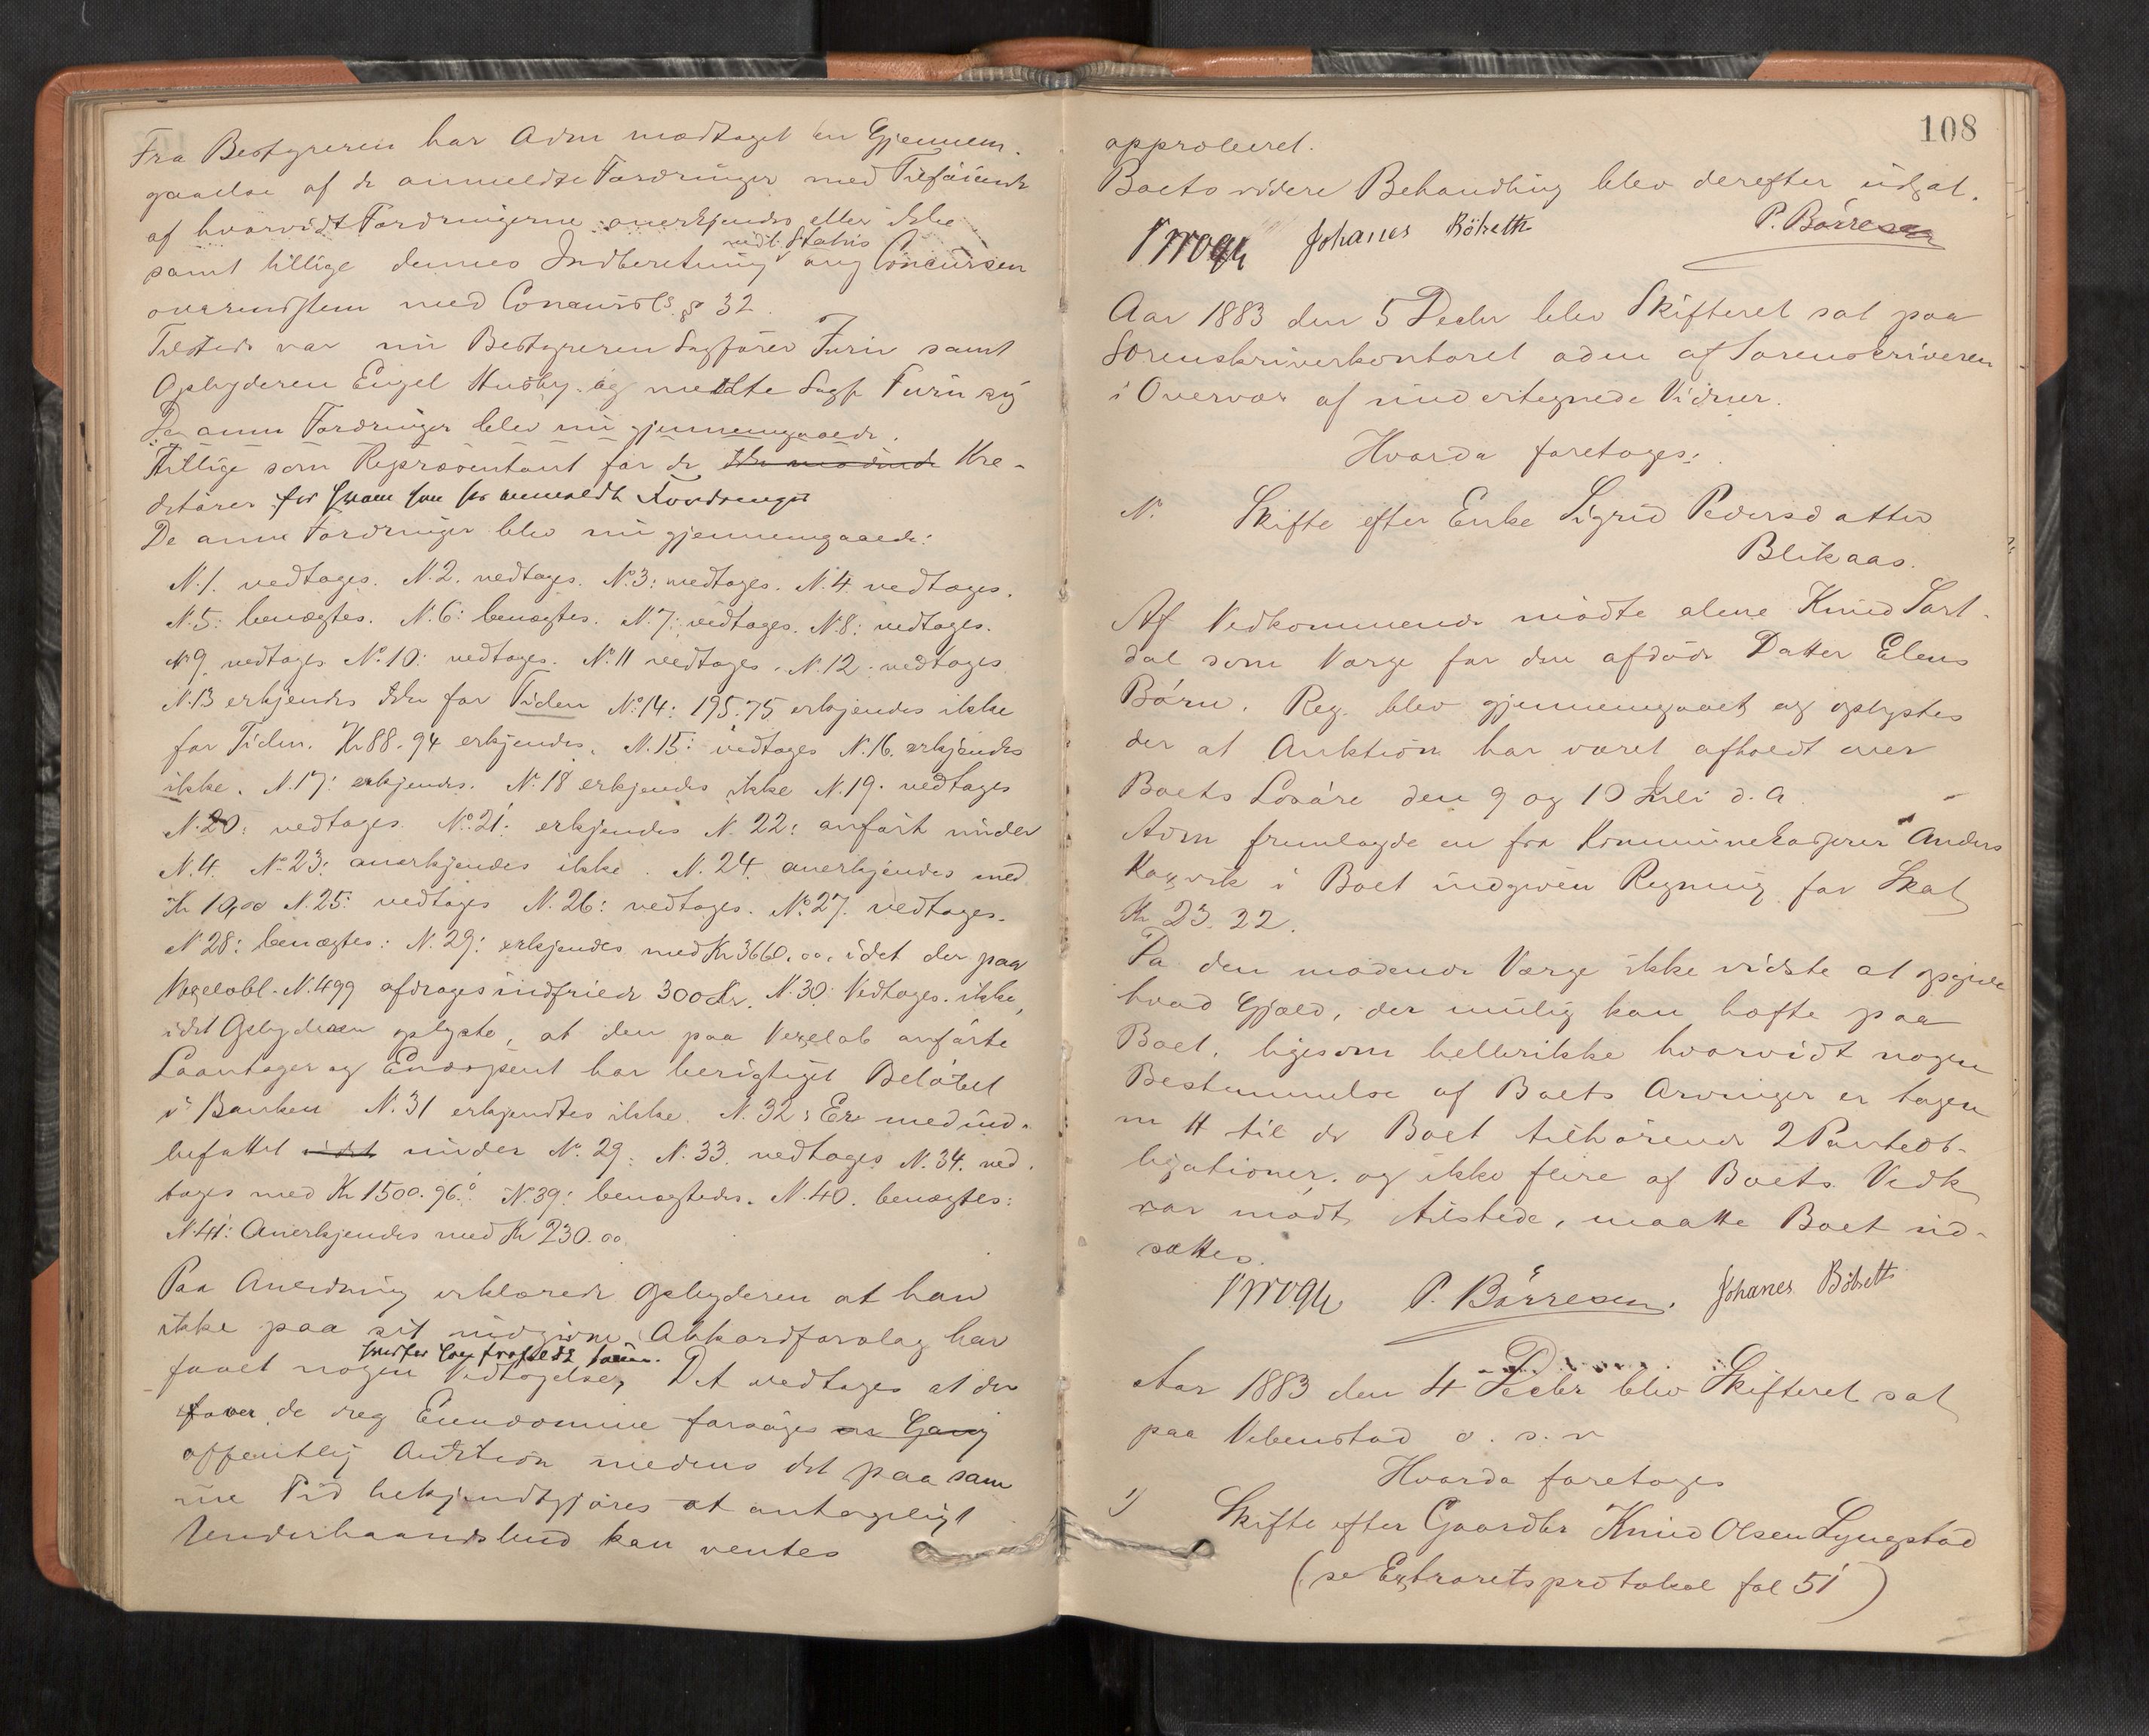 Fra Bestyreren har Adm modtaget en Gjennem-
gaaelse af de anmeldte Fordringer med Tilføiende
af hvorvidt Fordringerne anerkjendes eller ikke
vedl. Status
samt tillige dennes Indberetning ang Concursen
overenstem med Concursl. § 32.
Tilstede var nu Bestyreren Sagfører Furin samt
Opbyderen Engel Husby. og meldte Sagf Furin sig
De anm Fordringer blev nu gjennemgaaede.
Tillige som Repræsentant for de ikke mødende Kre-
ditorer for hvem han har anmeldt Fordringer
De anm Fordringer blev nu gjennemgaaede:
N.1. vedtages. N.2. vedtages. No 3: vedtages. N.4 vedtages.
N.5: benægtes. N.6: benægtes. N.7: vedtages. N.8: vedtages.
N 9 vedtages No 10: vedtages. No 11 vedtages. N.12. vedtages
N.13 erkjendes ikke for Tiden No 14: 195.75 erkjendes ikke
for Tiden. Kr 88.94 erkjendes. N.15: vedtages N.16. erkjendes
ikke. N.17: erkjendes. No 18 erkjendes ikke N.19. vedtages
N.20: vedtages. No.21: erkjendes N.22: anført under
N.4. No 23: anerkjendes ikke. N.24 anerkjendes med
Kr 10,00 N.25: vedtages N.26: vedtages. No 27. vedtages.
N 28: benægtes: N.29: erkjendes med Kr 3660.00. idet der paa
Vexelobl. N.499 afdrages indfriede 300 Kr. N.30: Vedtages. ikke,
idet Opbyderen oplyste, at den paa Vexelob anførte
Laantager og Endospent har berigtiget Beløbet
i Banken N.31 erkjendtes ikke. N.32: Er medind-
befattet idet under No 29. N.33. vedtages N.34. ved-
tages med Kr 1500.96. No 39: benægtedes. N.40. benægtes:
N.41: Anerkjendes med Kr 230.00
Paa Anledning erklærede Opbyderen at han
ikke paa sit indgivne Akkordforslag har
faaet nogen Vedtagelse, Det vedtages at der
over de reg Eiendomme forsøges en Gang
offentlig Auktion medens det paa sam
me Tid bekjendtgjøres at antageligt
Underhaandsbud kan ventes
108
approberet.
Boets videre Behandling blev derefter udsat.
Krogh Johanes Bølseth P. Børresen
Aar 1883 den 5 Decbr blev Skifteret sat paa
Sorenskriverkontoret adm af Sorenskriveren
i Overvær af undertegnede Vidner.
Hvorda foretoges:
No Skifte efter Enke Sigrid Pedersdatter
Blikaas.
Af Vedkommende mødte alene Knud Sart-
dal som Værge for den afdøde Datter Elens
Børn. Reg. blev gjennemgaaet og oplystes
der at Auktion har været afholdt over
Boets Løsøre den 9 og 10 Juli d. A.
Adm fremlagde en fra Kommunekasserer Anders
Kaxvik i Boet indgiven Regning for Skat
Kr 23.22.
Da den mødende Værge ikke vidste at opgive
hvad Gjæld, der mulig kan hæfte paa
Boet, ligesom hellerikke hvorvidt nogen
Bestemmelse af Boets Arvinger er tagen
m H til de Boet tilhørende 2 Panteob-
ligationer, og ikke flere af Boets Vedk
var mødt tilstede, maatte Boet ud-
sættes.
Krogh P. Børresen. Johanes Bølseth
Aar 1883 den 4 Decbr blev Skifteret sat
paa Vebenstad o. s. v
Hvorda foretoges
1) Skifte efter Gaardbr Knud Olsen Lyngstad
(se Extraretsprotokol fol 51)